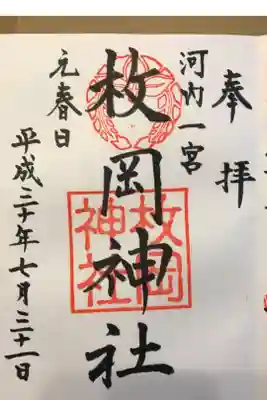 奉拝
河内一宮
枚岡神社
枚岡神社
元春日
平成三十年七月三十一日